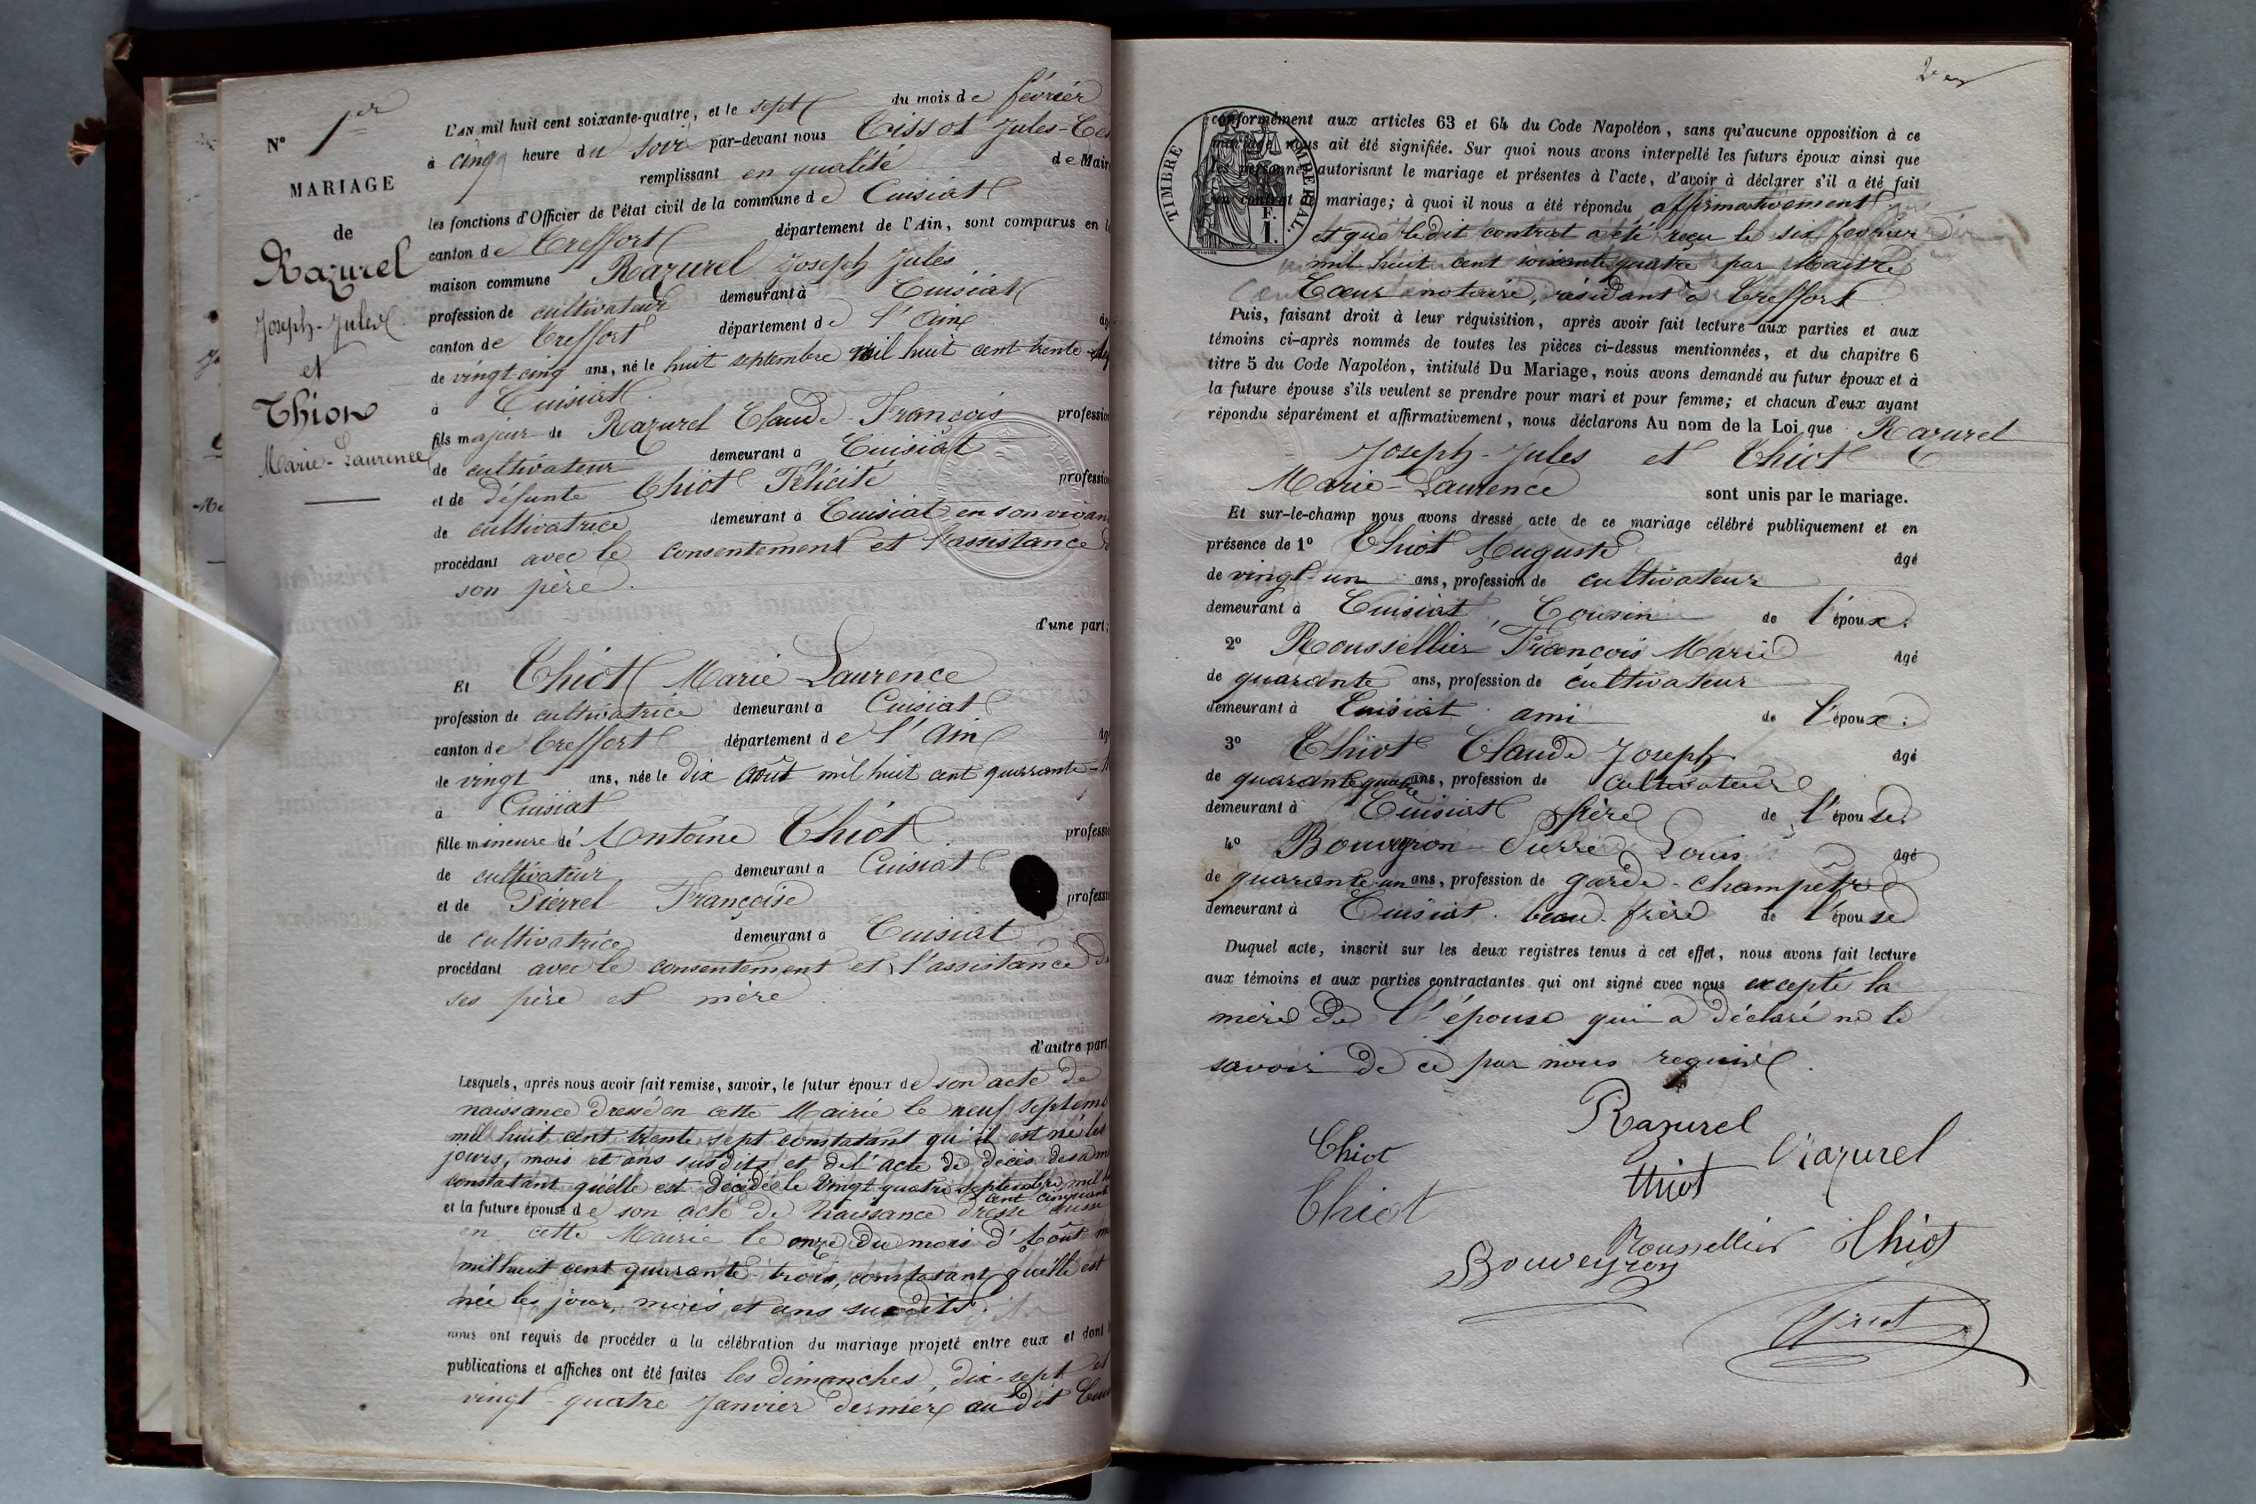 N° 1er
MARIAGE
de
Razurel
Joseph-Jules
et
Thiot
Marie-Laurence
L'AN mil huit cent soixante-quatre, et le sept du mois de février
à cinq heure du soir par-devant nous Tissot Jules-
remplissant en qualité de Mair
les fonctions d'Officier de l'état civil de la commune de Cuisiat
canton de Treffort département de l'Ain, sont comparus en l
maison commune Razurel Joseph Jules
profession de cultivateur demeurant à Cuisiat
canton de Treffort département de l'Ain
de vingt cinq ans, né le huit septembre mil huit cent trente
à Cuisiat
fils majeur de Razurel Claude-François profession
de cultivateur demeurant à Cuisiat
et de défunte Thiot Félicité profession
de cultivatrice demeurant à Cuisiat en son vivan
procédant avec le consentement et l'assistance d
son père.
d'une part;
Et Thiot Marie Laurence
profession de cultivatrice demeurant à Cuisiat
canton de Treffort département de l'Ain
de vingt ans, née le dix août mil huit cent quarante
à Cuisiat
fille mineure de Antoine Thiot professi
de cultivateur demeurant à Cuisiat
et de Pierrel Françoise professi
de cultivatrice demeurant à Cuisiat
procédant avec le consentement et l'assistance d
ses père et mère
d'autre part
Lesquels, après nous avoir fait remise, savoir, le futur époux de son acte de
naissance dressé en cette Mairie le neuf septemb
mil huit cent trente sept constatant qu'il est né les
jours, mois et ans susdits et de l'acte de décès de sa m
constatant qu'elle est décédée le vingt quatre septembre mil
cent cinquante
et la future épouse de son acte de naissance dressé aussi
en cette Mairie le onze du mois d'Août
mil huit cent quarante-trois, constatant qu'elle est
née les jour, mois et ans susdits.
nous ont requis de procéder à la célébration du mariage projeté entre eux et dont
publications et affiches ont été faites les dimanches, dix-sept et
vingt-quatre Janvier dernier au dit
TIMBRE IMPERIAL.
F.
1.
conformément aux articles 63 et 64 du Code Napoléon, sans qu'aucune opposition à ce
mariage nous ait été signifiée. Sur quoi nous avons interpellé les futurs époux ainsi que
les personnes autorisant le mariage et présentes à l'acte, d'avoir à déclarer s'il a été fait
un contrat de mariage; à quoi il nous a été répondu affirmativement
et que ledit contrat a été reçu le six février
mil huit cent soixante quatre par Maître
Cœur notaire, résidant à Treffort.
Puis, faisant droit à leur réquisition, après avoir fait lecture aux parties et aux
témoins ci-après nommés de toutes les pièces ci-dessus mentionnées, et du chapitre 6
titre 5 du Code Napoléon, intitulé Du Mariage, nous avons demandé au futur époux et à
la future épouse s'ils veulent se prendre pour mari et pour femme; et chacun d'eux ayant
répondu séparément et affirmativement, nous déclarons Au nom de la Loi que Razurel
Joseph-Jules et Thiot
Marie-Laurence sont unis par le mariage.
Et sur-le-champ nous avons dressé acte de ce mariage célébré publiquement et en
présence de 1° Thiot Auguste âgé
de vingt-un ans, profession de cultivateur
demeurant à Cuisiat, Cousin de l'époux.
2° Roussellier François Marie âgé
de quarante ans, profession de cultivateur
demeurant à Cuisiat ami de l'époux;
3° Thiot Claude Joseph âgé
de quarante quatre ans, profession de cultivateur
demeurant à Cuisiat frère de l'épouse.
4° Bouveyron Pierre Louis âgé
de quarante-un ans, profession de garde-champêtre
demeurant à Cuisiat. beau-frère de l'épouse
Duquel acte, inscrit sur les deux registres tenus à cet effet, nous avons fait lecture
aux témoins et aux parties contractantes qui ont signé avec nous excepté la
mère de l'épouse qui a déclaré ne le
savoir de ce par nous requise.
Razurel
Thiot Razurel
Thiot
Thiot
Roussellier Thiot
Bouveyron